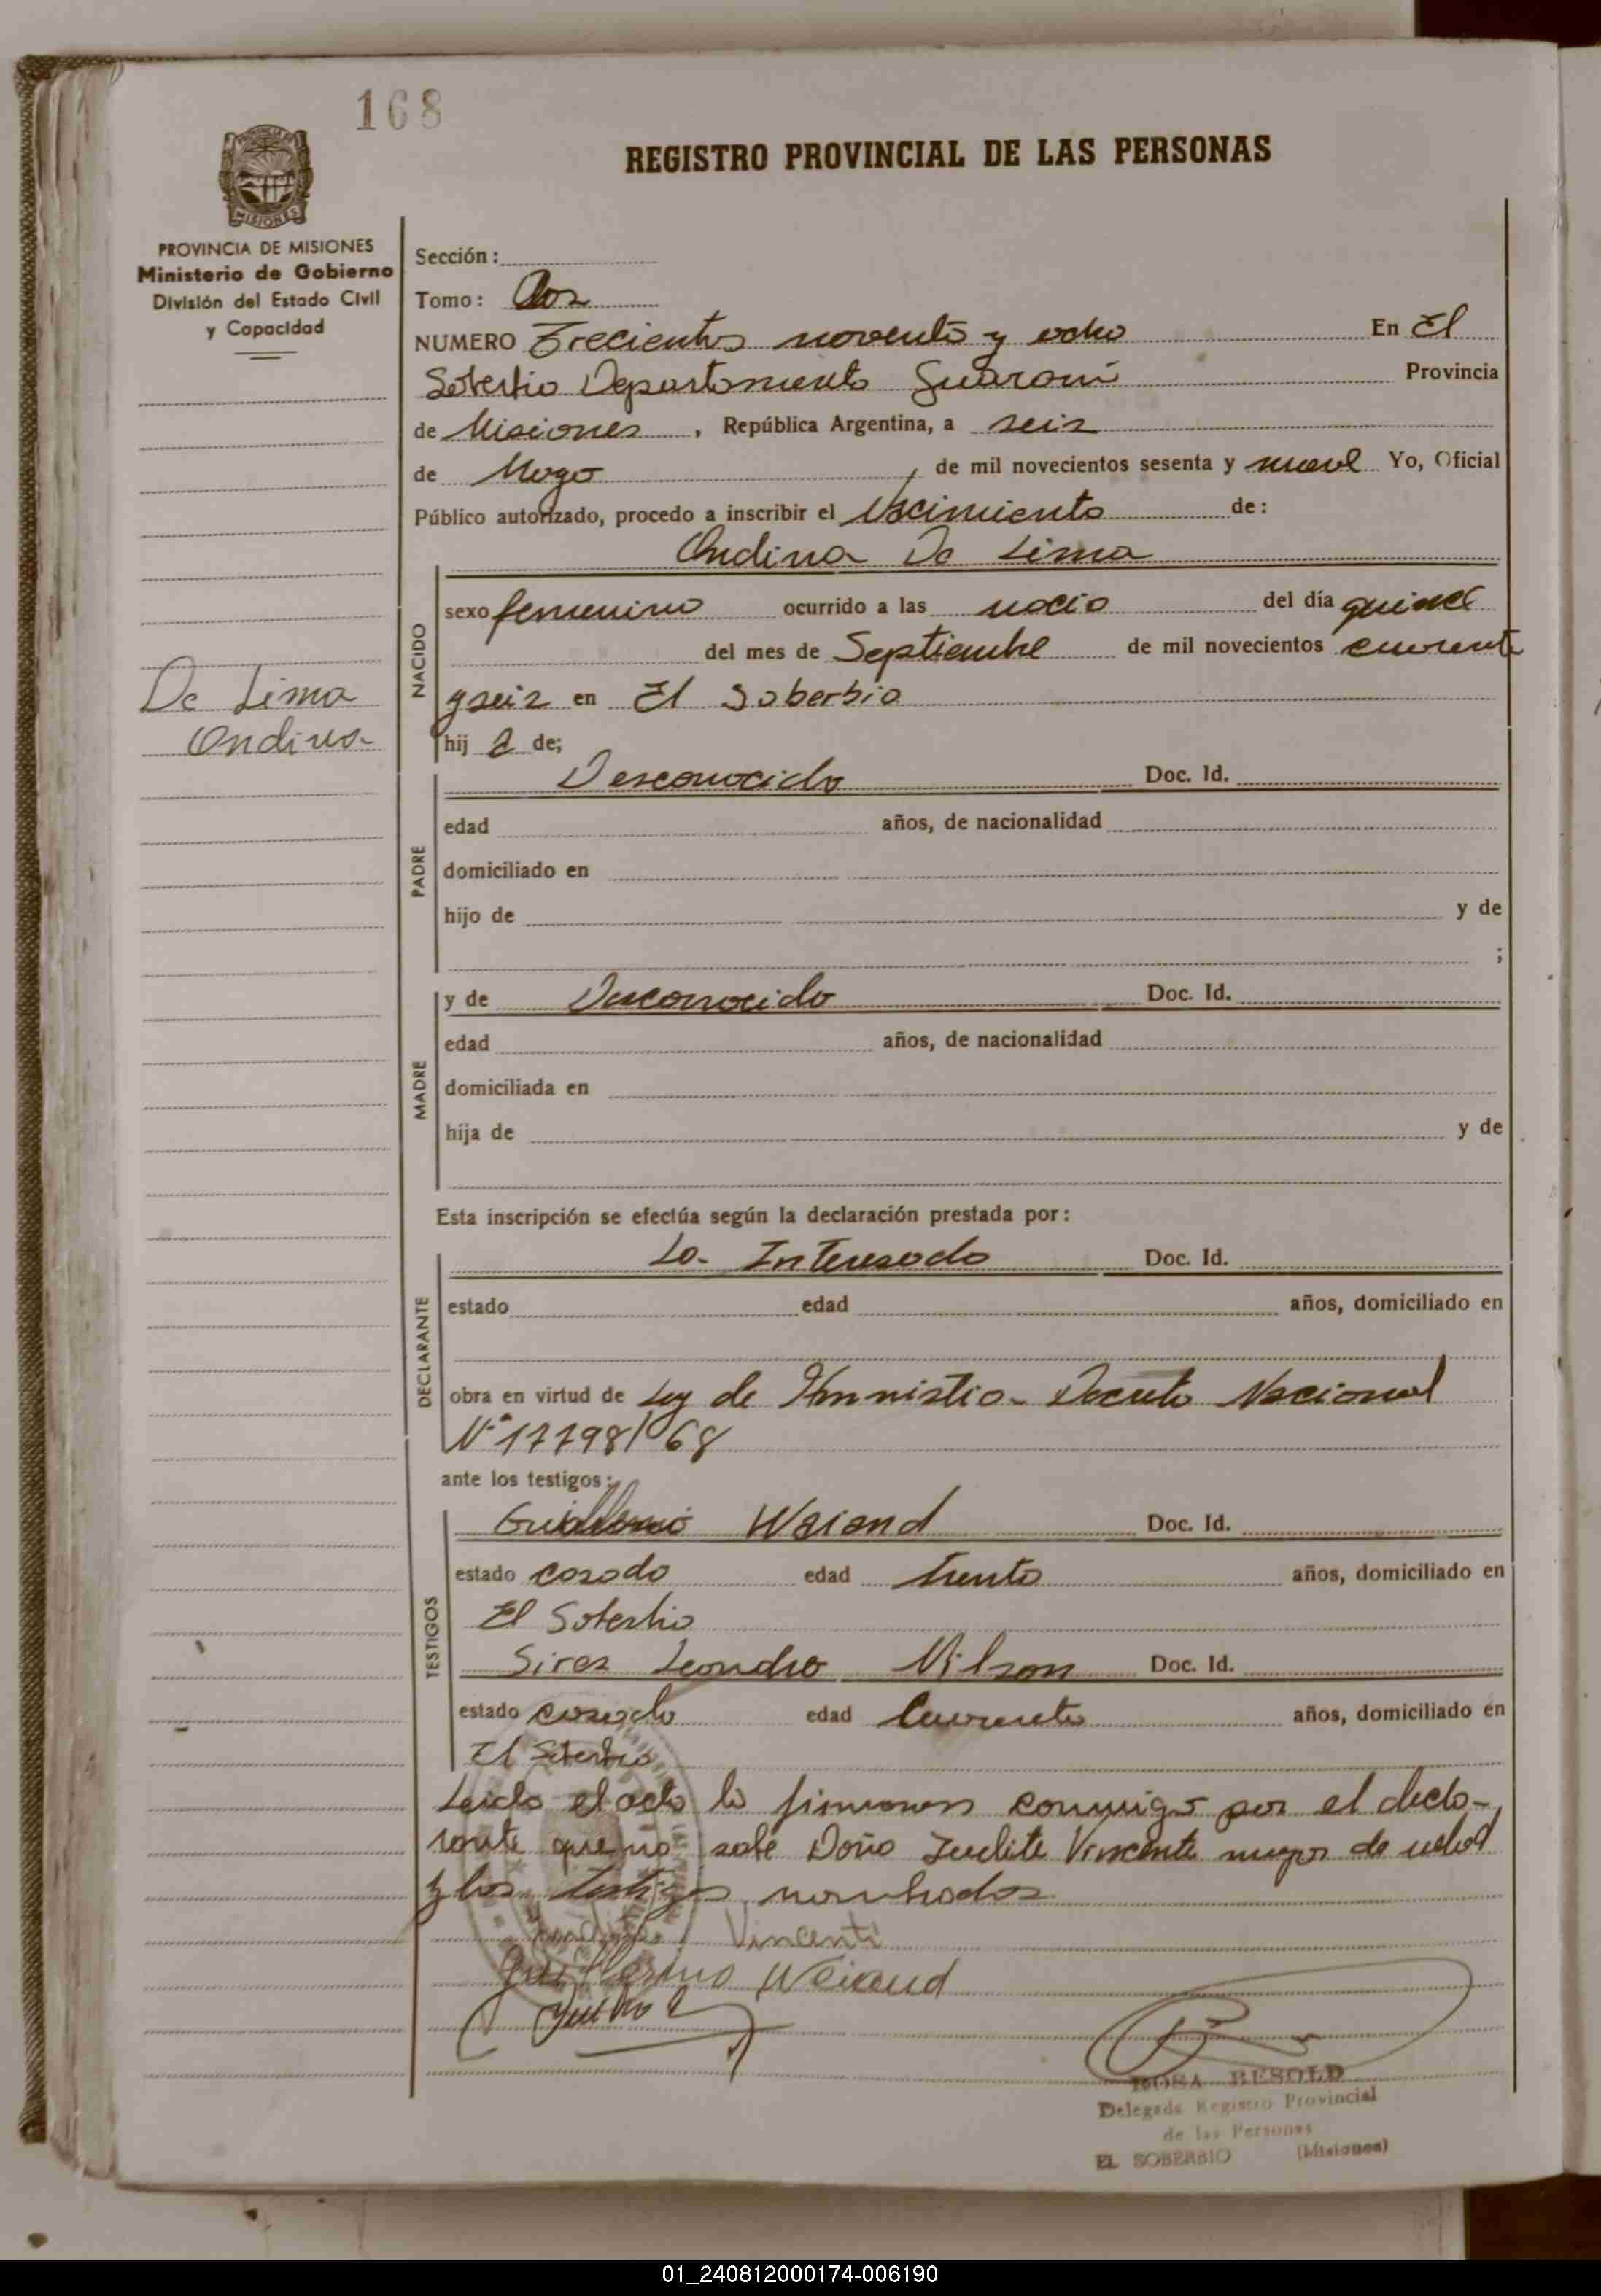 168
REGISTRO PROVINCIAL DE LAS PERSONAS
PROVINCIA DE MISIONES
Ministerio de Gobierno
División del Estado Civil
y Capacidad
Sección:
Tomo: Dos
NUMERO Trecientos noventa y ocho En El
Soberbio Departamento Guarani Provincia
de Misiones, República Argentina, a seis
de Mayo, de mil novecientos sesenta y nueve Yo, Oficial
Público autorizado, procedo a inscribir el Nacimiento de:
Ondina De Lima
NACIDO
sexo femenino ocurrido a las nacio del día quince
del mes de Septiembre de mil novecientos cuarenta
y seis en El Soberbio
hij a de;
De Lima
Ondina
PADRE
Desconocido Doc. Id.
edad años, de nacionalidad
domiciliado en
hijo de y de
;
MADRE
y de Desconocido Doc. Id.
edad años, de nacionalidad
domiciliada en
hija de y de
Esta inscripción se efectúa según la declaración prestada por:
DECLARANTE
La Interesada Doc. Id.
estado edad años, domiciliado en
obra en virtud de Ley de Amnistia - Decreto Nacional
Nº 17798/68
ante los testigos:
TESTIGOS
Guillermo Weiand Doc. Id.
estado casado edad trenta años, domiciliado en
El Soberbio
Sires Leandro Nilson Doc. Id.
estado casado edad Cuarenta años, domiciliado en
El Soberbio
Leida el acta la firmaron conmigo por el decla-
rante que no sabe Doña Judite Vincente mayor de edad
y los testigos nombrados
Vincenti
Guillermo Weiand
ROSA BESOLD
Delegada Registro Provincial
de las Personas
EL SOBERBIO (Misiones)
01_240812000174-006190